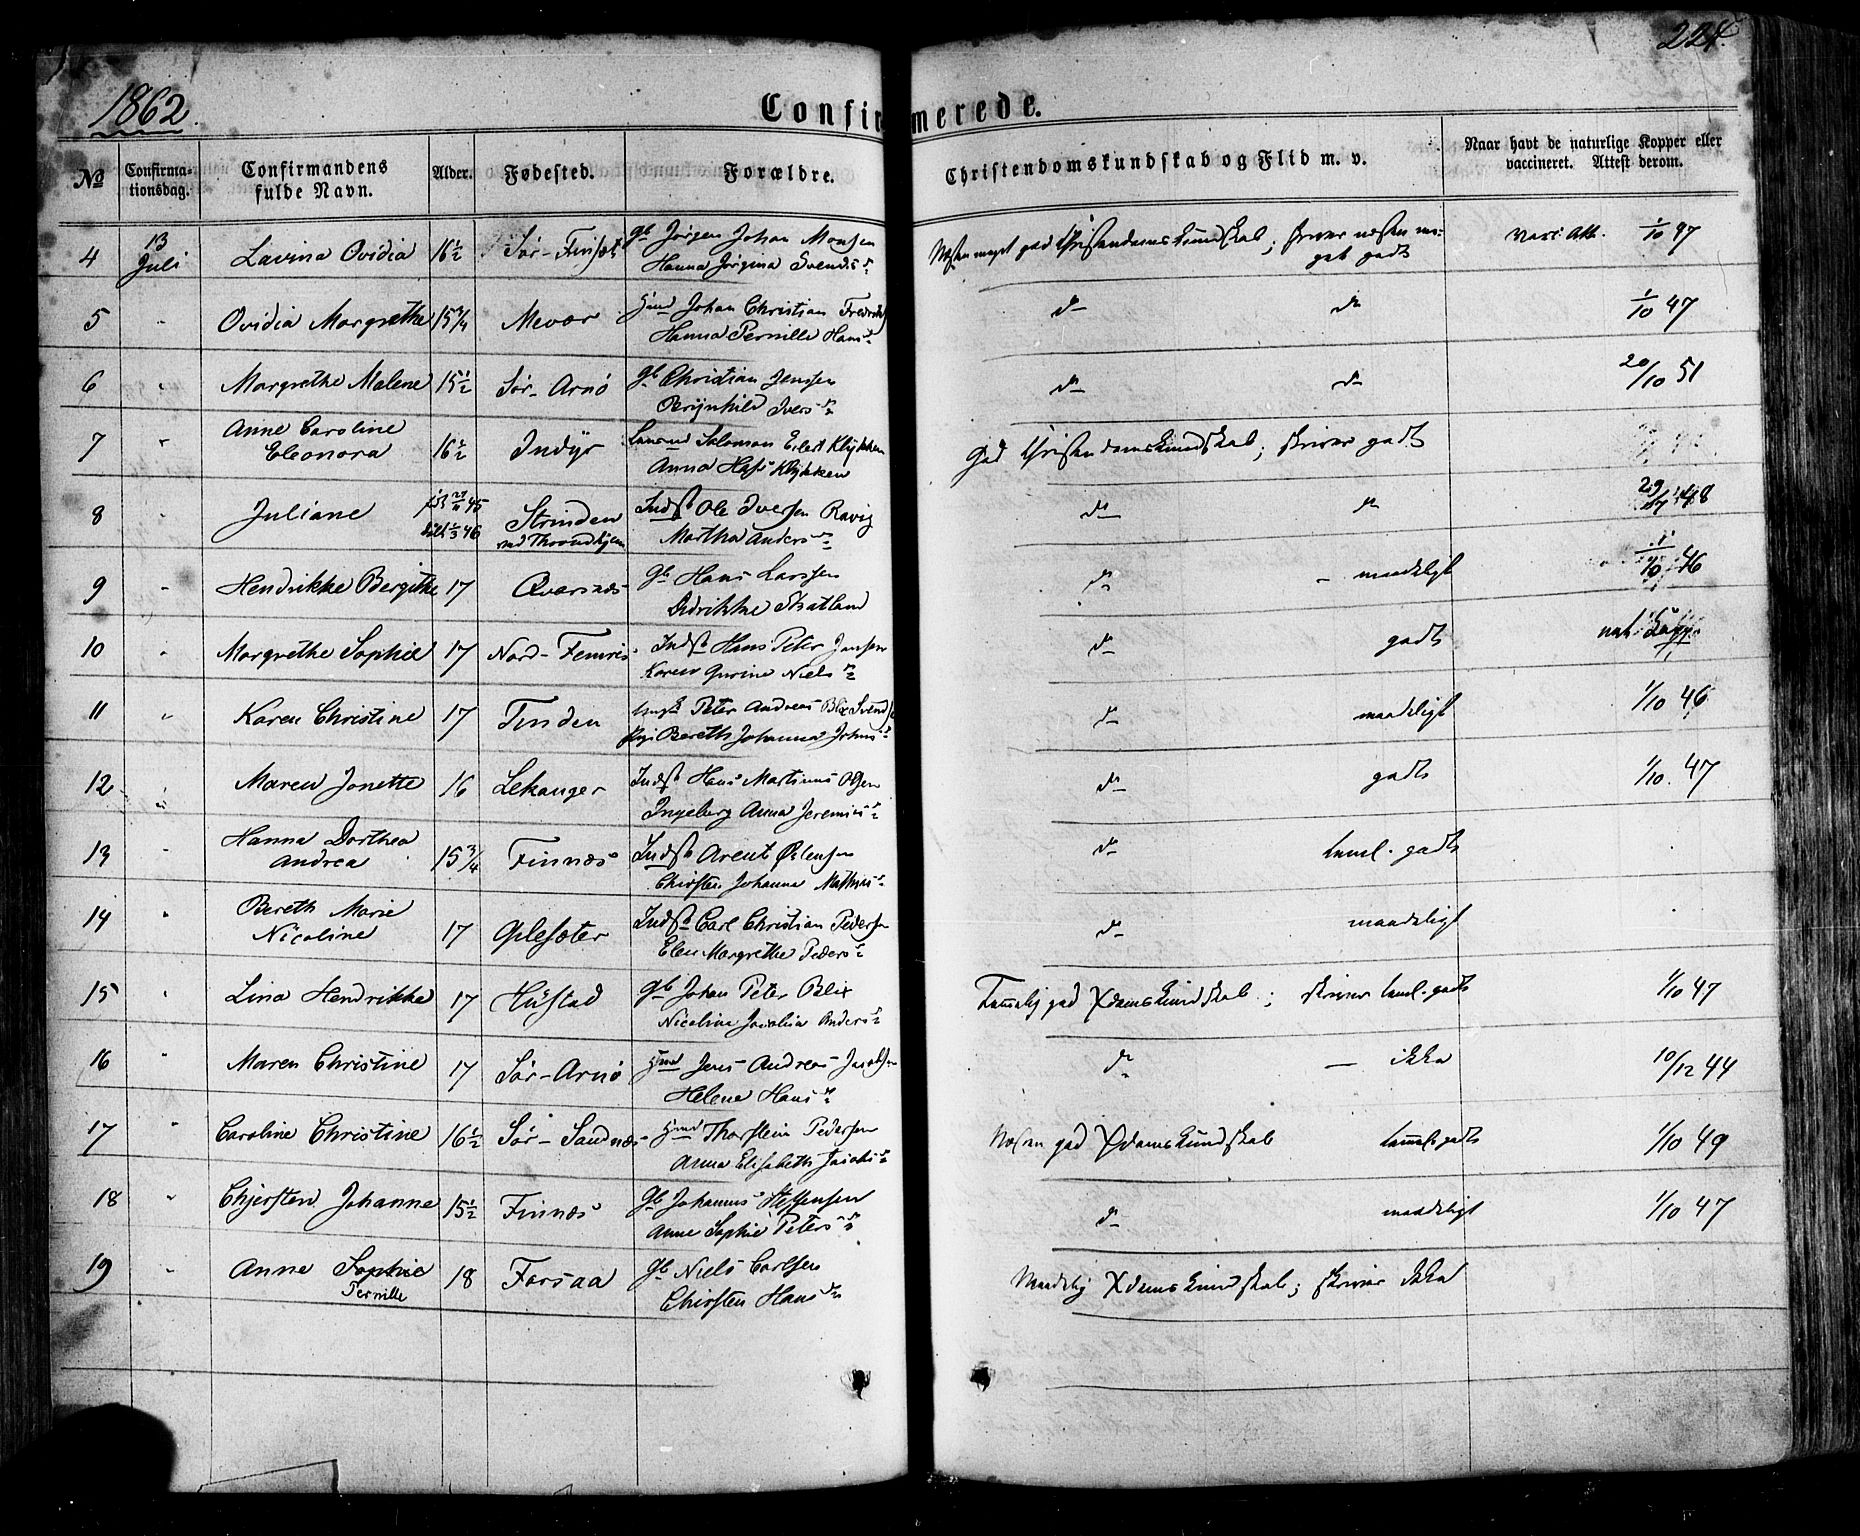 224.
1862.
Confirmerede.
No
Confirma-
tionsdag.
Confirmandens
fulde Navn.
Alder.
Fødested.
Forældre.
Christendomskundskab og Flid m. v.
Naar havt de naturlige Kopper eller
vaccineret. Attest derom.
4 13 Juli Lavina Ovidia 16½ Sør-Finset
Gb Jørgen Johan Monsen
Hanna Jørgina Svends d
Næsten meget god Christendomskundskab; skriver næsten me-
get godt
Vacc. Att. 1/10 47
5 " Ovidia Margrethe 15¾ Mevær
Hmd Johan Christian
Hanna Pernille Hans d
do do 1/10 47
6 " Margrethe Malene 15½ Sør-Arnø
Gb Christian Jenssen
Brynhild Ivers d
do do 20/10 51
7 " Anne Caroline
Eleonora 16½ Indyr
Salomon Eilert Klykken
Anna Klykken
God Christendomskundskab; skriver godt
8 " Juliane 45
46
Strinden
ved Throndhjem
Indst Ole Iversen Ravig
Martha Anders d
do do 48
9 " Hendrikke Bergithe 17 Qvarsnæs
Gb Hans Larssen
Didrikke Skatland
do — maadeligt 46
10 " Margrethe Sophie 17 Nord-Femris
Indst Hans Peter Jensen
Karen Gurine Niels d
do godt nat. Kopp.
11 " Karen Christine 17 Tinden
Peter Andreas Blix
Bereth Johanna Johns d
do maadeligt 1/10 46
12 " Maren Jonette 16 Lekanger
Indst Hans Martinus Olsen
Ingeborg Anna Jeremias d
do godt 1/10 47
13 " Hanna Dorthea
Andrea 15¾ Finnæs
Indst Arent Østensen
Chirsten Johanna Mathias d
do taml. godt
14 " Bereth Marie
Nicoline 17 Gilesæter
Indst Carl Christian Pedersen
Elen Margrethe Peders d
do maadeligt
15 " Lina Hendrikke 17 Hustad
Gb Johan Peter Blix
Nicoline Jacobia Anders d
Temmelig god Xdomskundskab; skriver taml. godt 1/10 47
16 " Maren Christine 17 Sør-Arnø
Hmd Jens Andreas Jacobsen
Helena Hans d
do — ikke 10/12 44
17 " Caroline Christine 16½ Sør-Sandnæs
Hmd Thorstein Pedersen
Anna Elisabeth Jacobs d
Næsten god Xdomskundskab taml. godt 1/10 49
18 " Chjersten Johanne 15½ Finnæs
Gb Johannes Steffensen
Anne Sophie Peters d
do maadeligt 1/10 47
19 " Anne Sophie
Pernille 18 Forsaa
Gb Niels Carlsen
Chirsten Hans d
Maadelig Xdomskundskab; skriver ikke